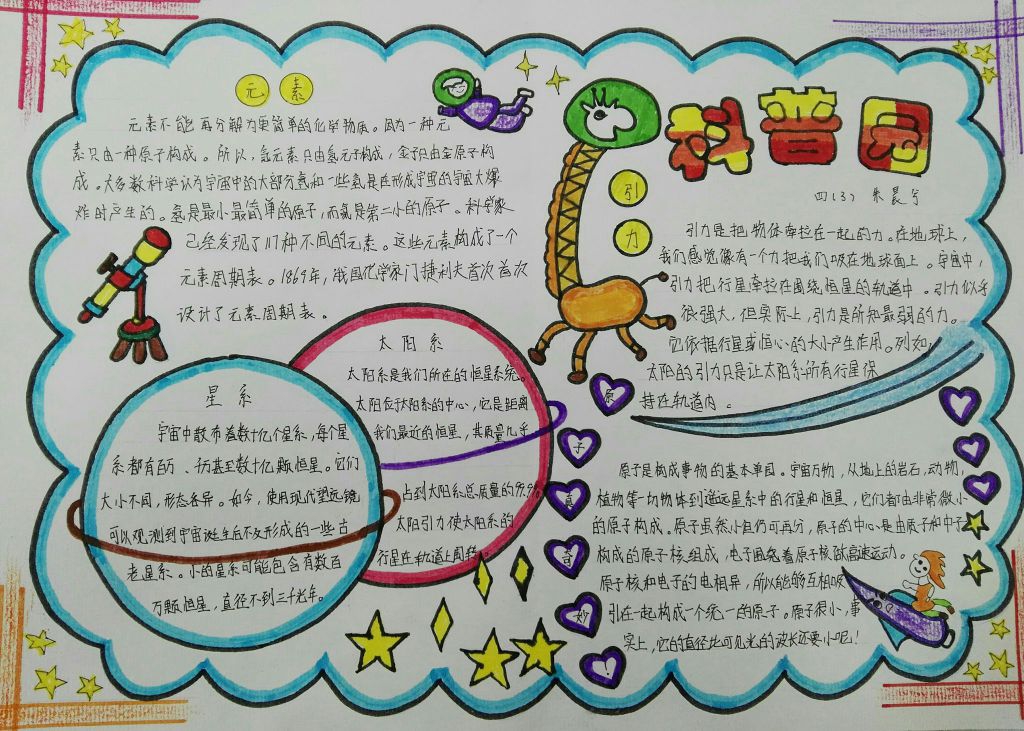 科普园
四(3) 朱晨兮
元素
元素不能再分解为更简单的化学物质。因为一种元
素只由一种原子构成。所以，氢元素只由氢元子构成，金子只由金原子构
成。大多数科学认为宇宙中的大部分氢和一些氦是在形成宇宙的宇宙大爆
炸时产生的。氢是最小最简单的原子，而氦是第二小的原子。科学家
已经发现了117种不同的元素。这些元素构成了一个
元素周期表。1869年，俄国化学家门捷利夫首次首次
设计了元素周期表。
引力
引力是把物体牵拉在一起的力。在地球上，
我们感觉像有一个力把我们吸在地球面上。宇宙中，
引力把行星牵拉在围绕恒星的轨道中。引力似乎
很强大，但实际上，引力是所知最弱的力。
它依据行星或恒心的大小产生作用。列如，
太阳的引力只是让太阳系所有行星保
持在轨道内。
太阳系
太阳系是我们所在的恒星系统。
太阳位于太阳系的中心，它是距离
我们最近的恒星，其质量几乎
占到太阳系总质量的99.9%
太阳引力使太阳系的
行星在轨道上周转。
星系
宇宙中散布着数十亿个星系，每个星
系都有百万、千万甚至数十亿颗恒星。它们
大小不同，形态各异。如今，使用现代望远镜
可以观测到宇宙诞生后不久形成的一些古
老星系。小的星系可能包含有数百
万颗恒星，直径不到三千光年。
原子真奇妙！
原子是构成事物的基本单园。宇宙万物，从地上的岩石，动物，
植物等一切物体到遥远星系中的行星和恒星，它们都由非常微小
的原子构成。原子虽然小但仍可再分，原子的中心是由质子和中子
构成的原子核组成，电子围绕着原子核做高速运动。
原子核和电子的电相异，所以能够互相吸
引在一起构成一个统一的原子。原子很小，事
实上，它的直径比可见光的波长还要小呢！